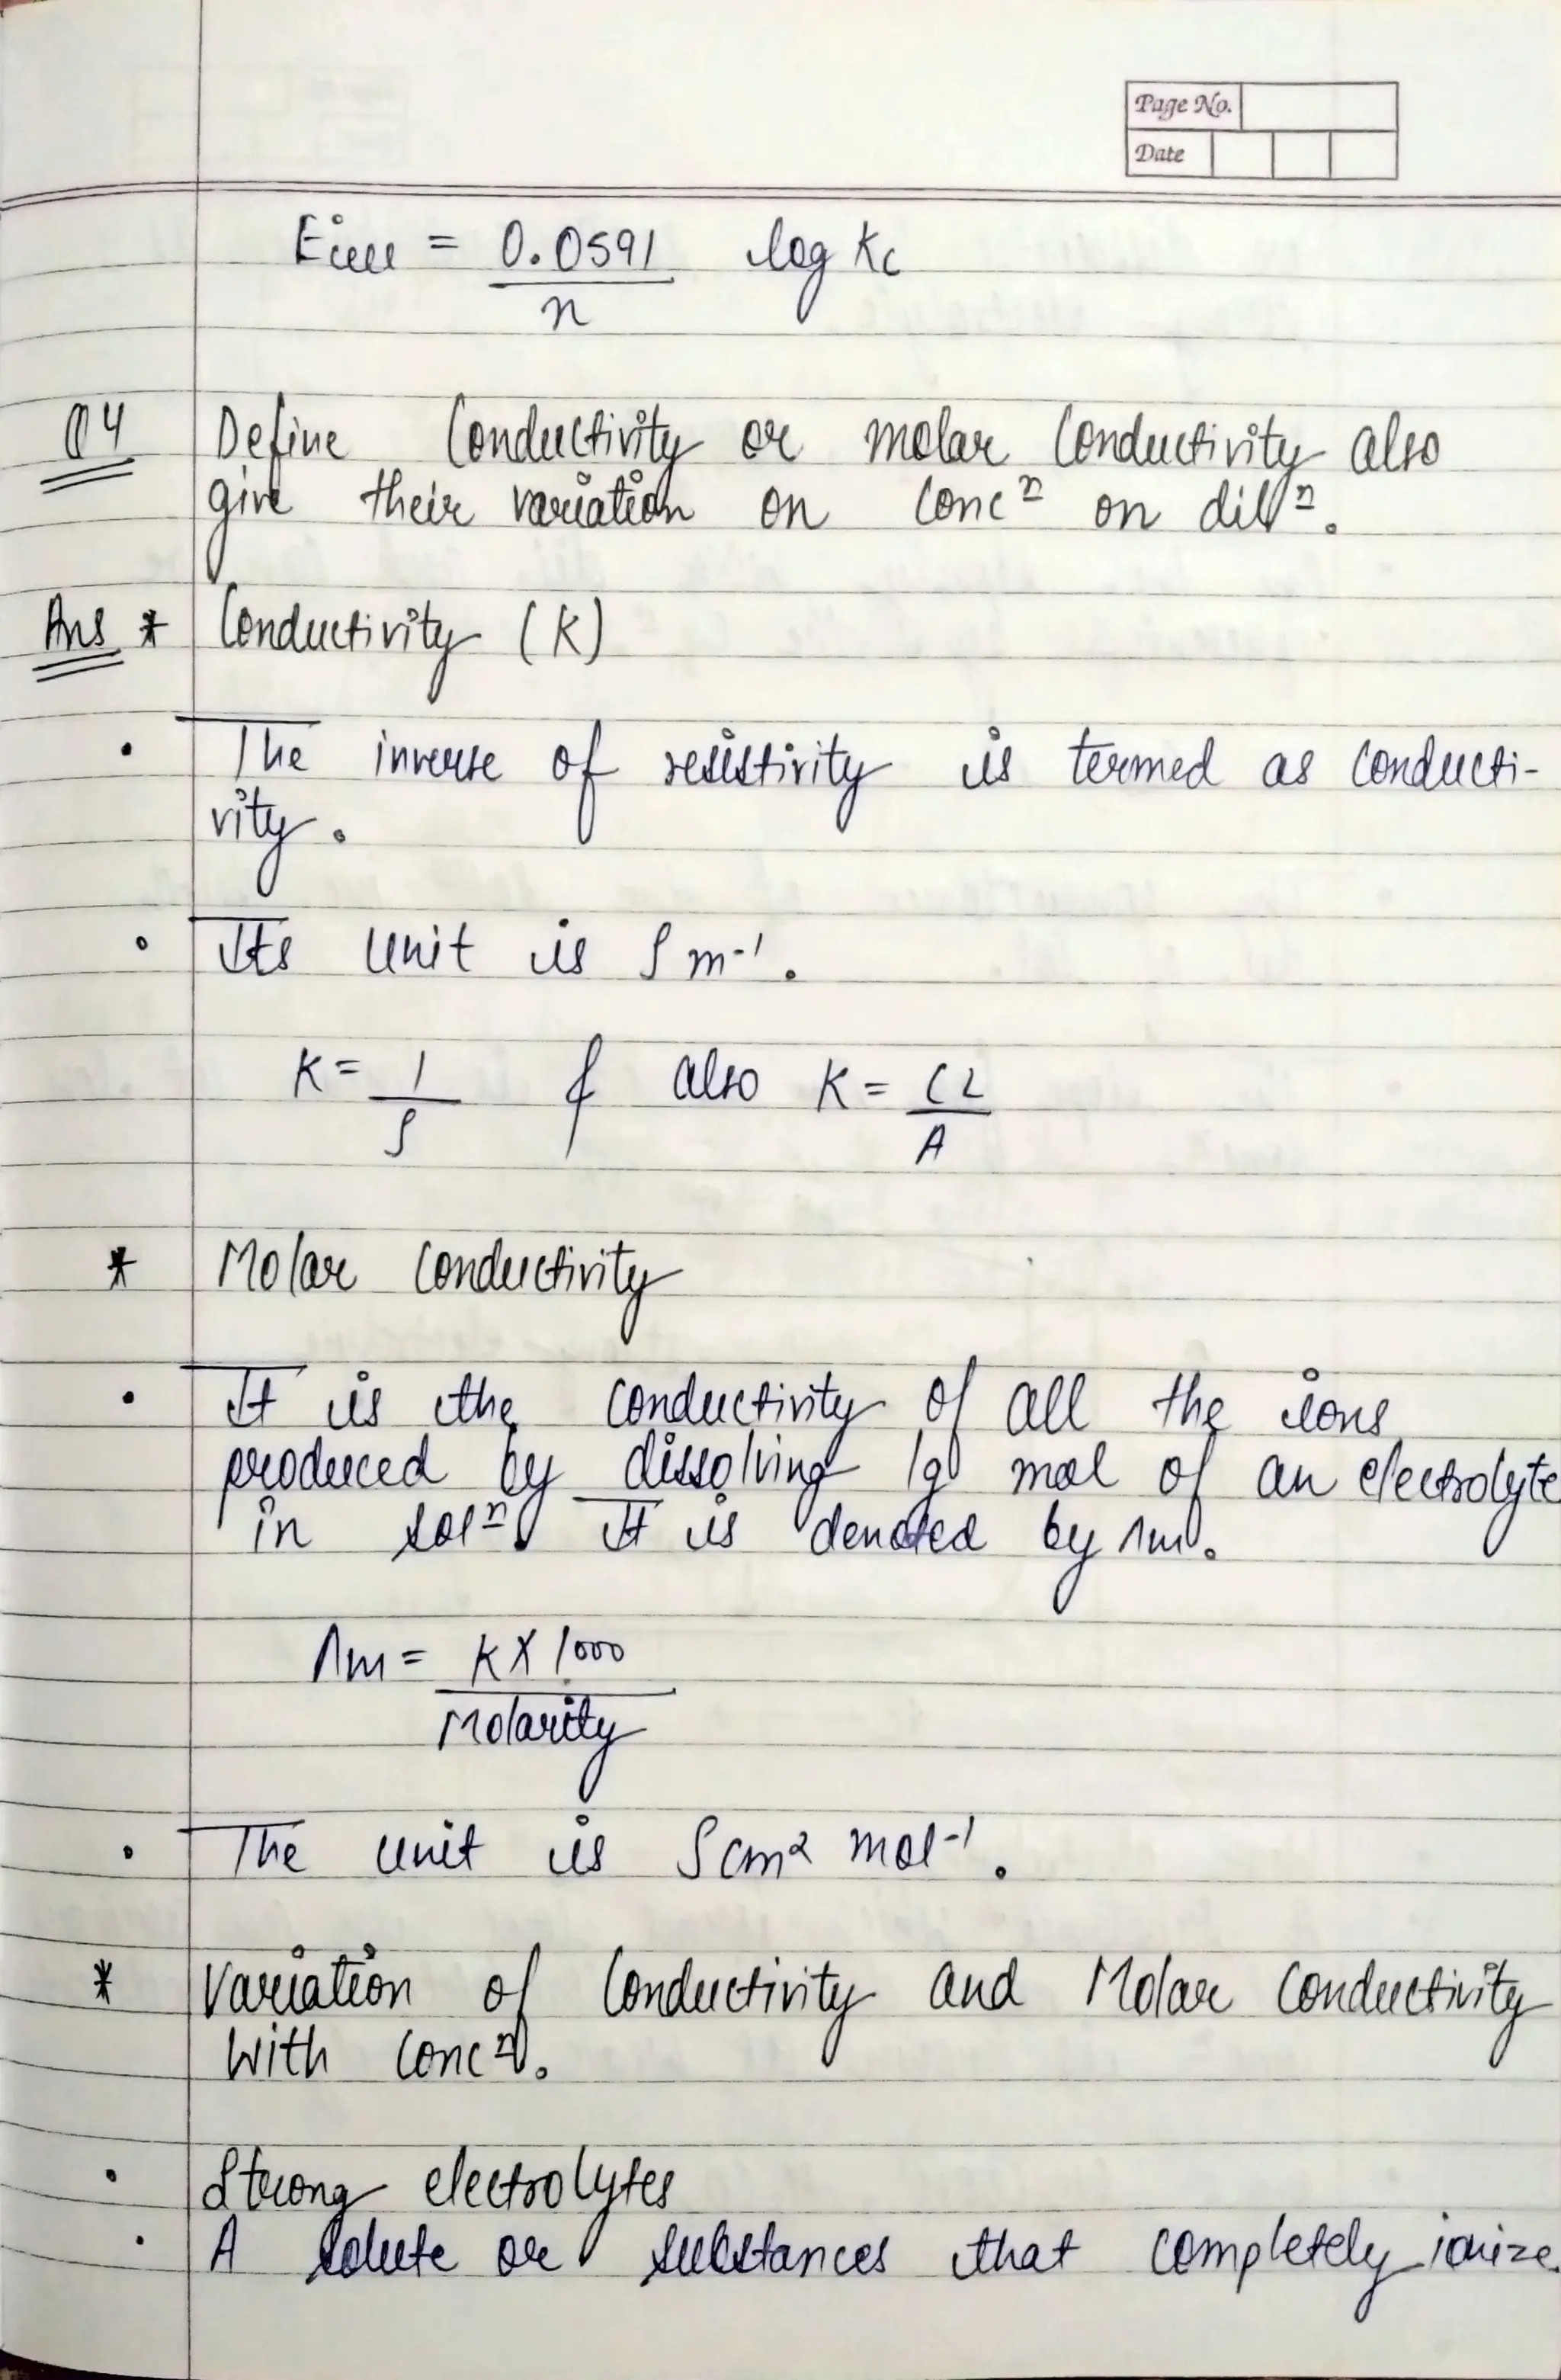 Page No.
Date
E°cell = 0.0591 log Kc
n
Q4 Define Conductivity or molar Conductivity also
give their variation on Concⁿ on dilⁿ.
Ans * Conductivity (K)
• The inverse of resistivity is termed as conducti-
vity.
• Its unit is S m⁻¹.
K = 1 & also K = CL
ρ A
* Molar Conductivity
• It is the conductivity of all the ions
produced by dissolving 1g mol of an electrolyte
in solⁿ. It is denoted by Λm.
Λm = K X 1000
Molarity
• The unit is S cm² mol⁻¹.
* Variation of Conductivity and Molar Conductivity
with Concⁿ.
• Strong electrolytes
• A solute or substances that completely ionize